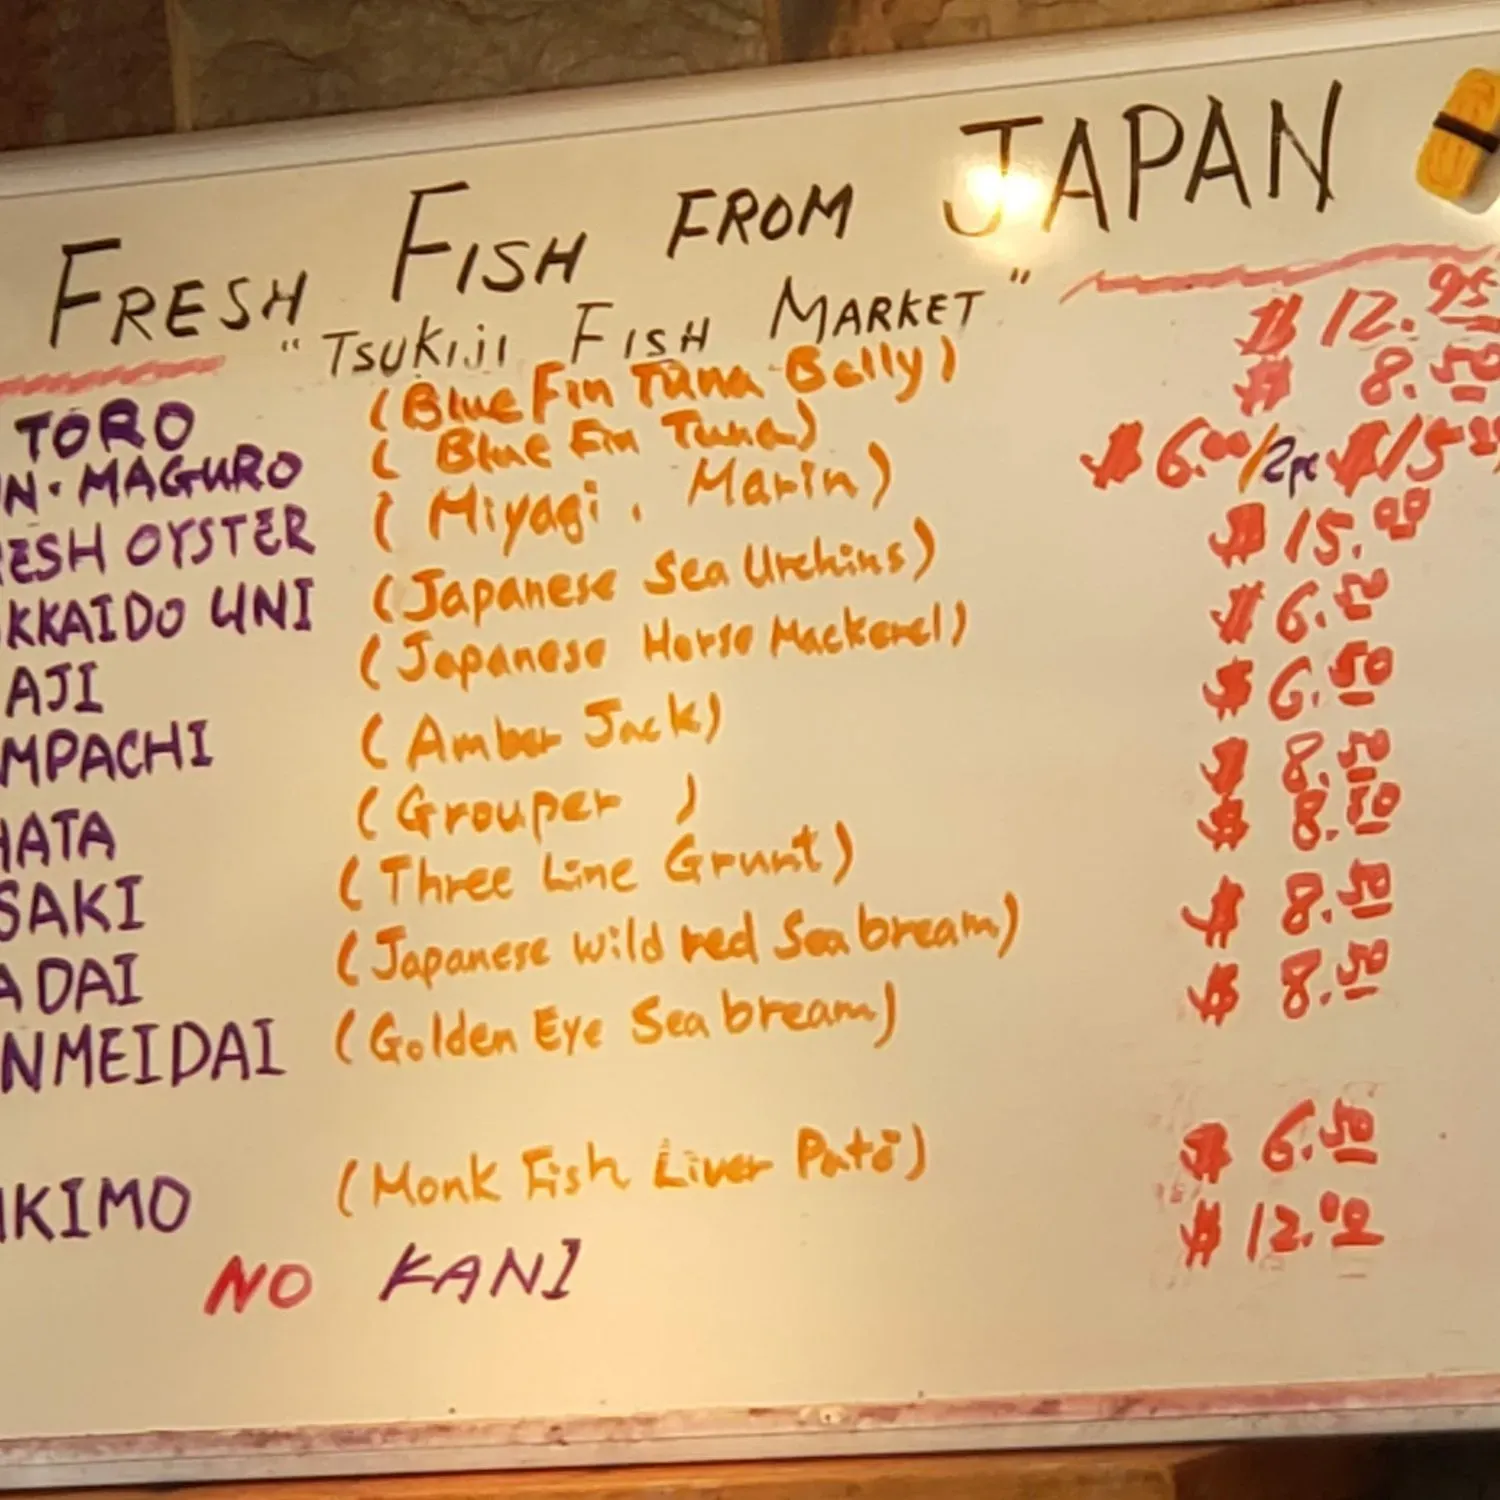 FRESH FISH FROM JAPAN
"TSUKIJI FISH MARKET"
TORO (Blue Fin Tuna Belly) $12.95
N. MAGURO (Blue Fin Tuna) $8.50
ESH OYSTER (Miyagi. Marin) $6.00/2pc $15
KKAIDO UNI (Japanese Sea Urchins) $15.00
AJI (Japanese Horse Mackerel) $6.50
MPACHI (Amber Jack) $6.50
HATA (Grouper) $8.50
SAKI (Three Line Grunt) $8.50
ADAI (Japanese wild red Sea bream) $8.50
NMEIDAI (Golden Eye Sea bream) $8.50
KIMO (Monk Fish Liver Pate) $6.50
NO KANI $12.00